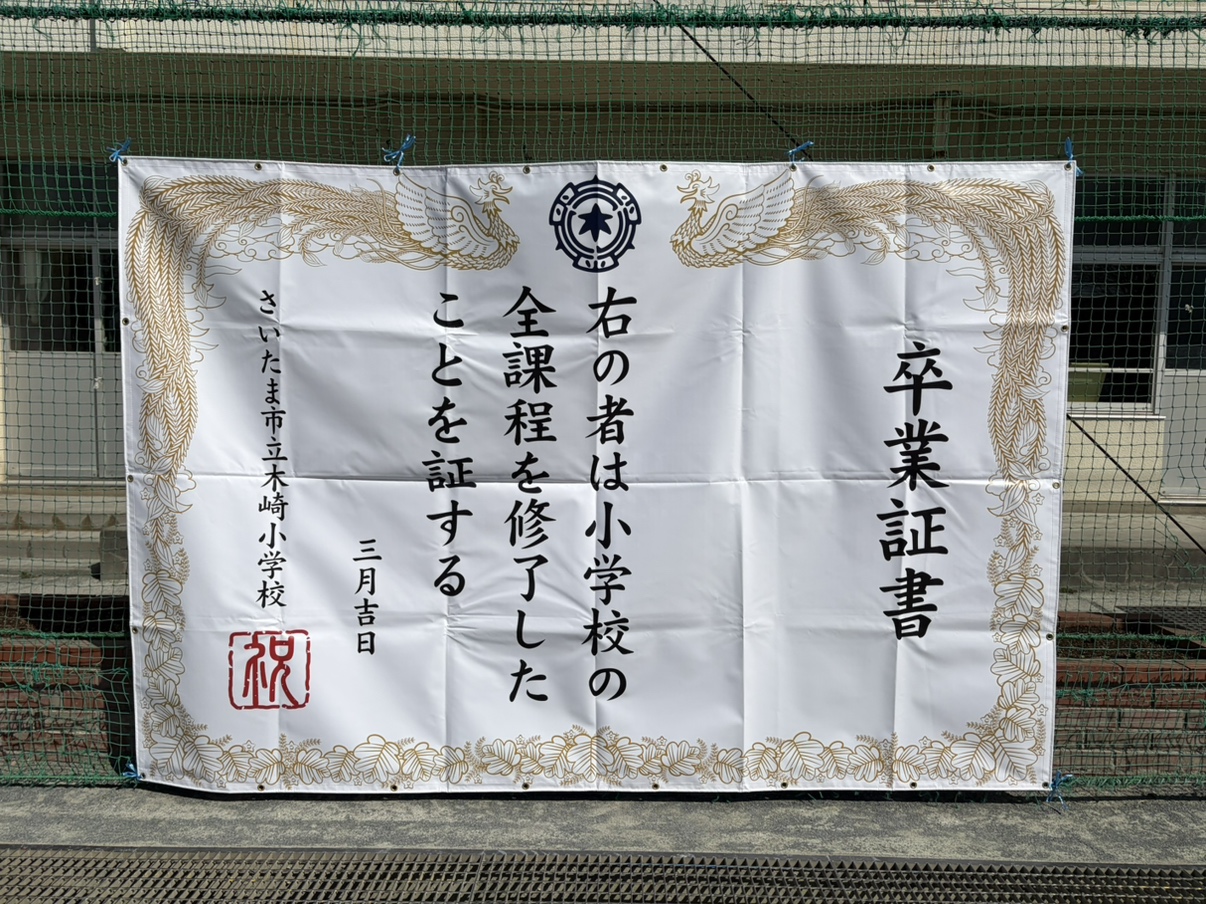 卒業証書
右の者は小学校の
全課程を修了した
ことを証する
三月吉日
さいたま市立木崎小学校
祝